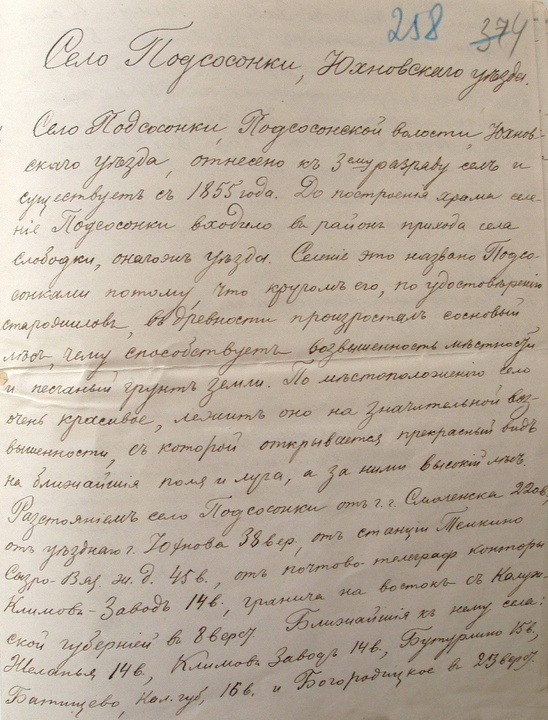 258 374
Село Подсосонки, Юхновскаго уѣзда.
Село Подсосонки, Подсосонской волости, Юхнов-
скаго уѣзда, отнесено къ 3ему разряду селъ и
существуетъ съ 1855 года. До построенія храма селе-
ніе Подсосонки входило въ районъ прихода села
Слободки, онагожъ уѣзда. Селеніе это названо Подсо-
сонками потому, что кругомъ его, по удостовѣренію
старожиловъ, въ древности произросталъ сосновый
лѣсъ, чему способствуетъ возвышенность мѣстности
и песчаный грунтъ земли. По мѣстоположенію село
очень красивое, лежитъ оно на значительной воз-
вышенности, съ которой открывается прекрасный видъ
на ближайшія поля и луга, а за ними высокій лѣсъ.
Разстояніемъ село Подсосонки отъ г. г. Смоленска 220в,
отъ уѣзднаго г. Юхнова 38 вер, отъ станціи Темкино
Сызро-Вяз. ж. д. 45 в., отъ почтово-телеграф конторы
Климовъ-Заводъ 14 в., гранича на востокъ съ Калуж-
ской губерніей въ 8 верст Ближайшія къ нему села:
Желанья 14 в., Климовъ Заводъ 14 в., Бутурлино 15 в.,
Батищево, Кал. губ, 16 в. и Богородицкое въ 23 верст.